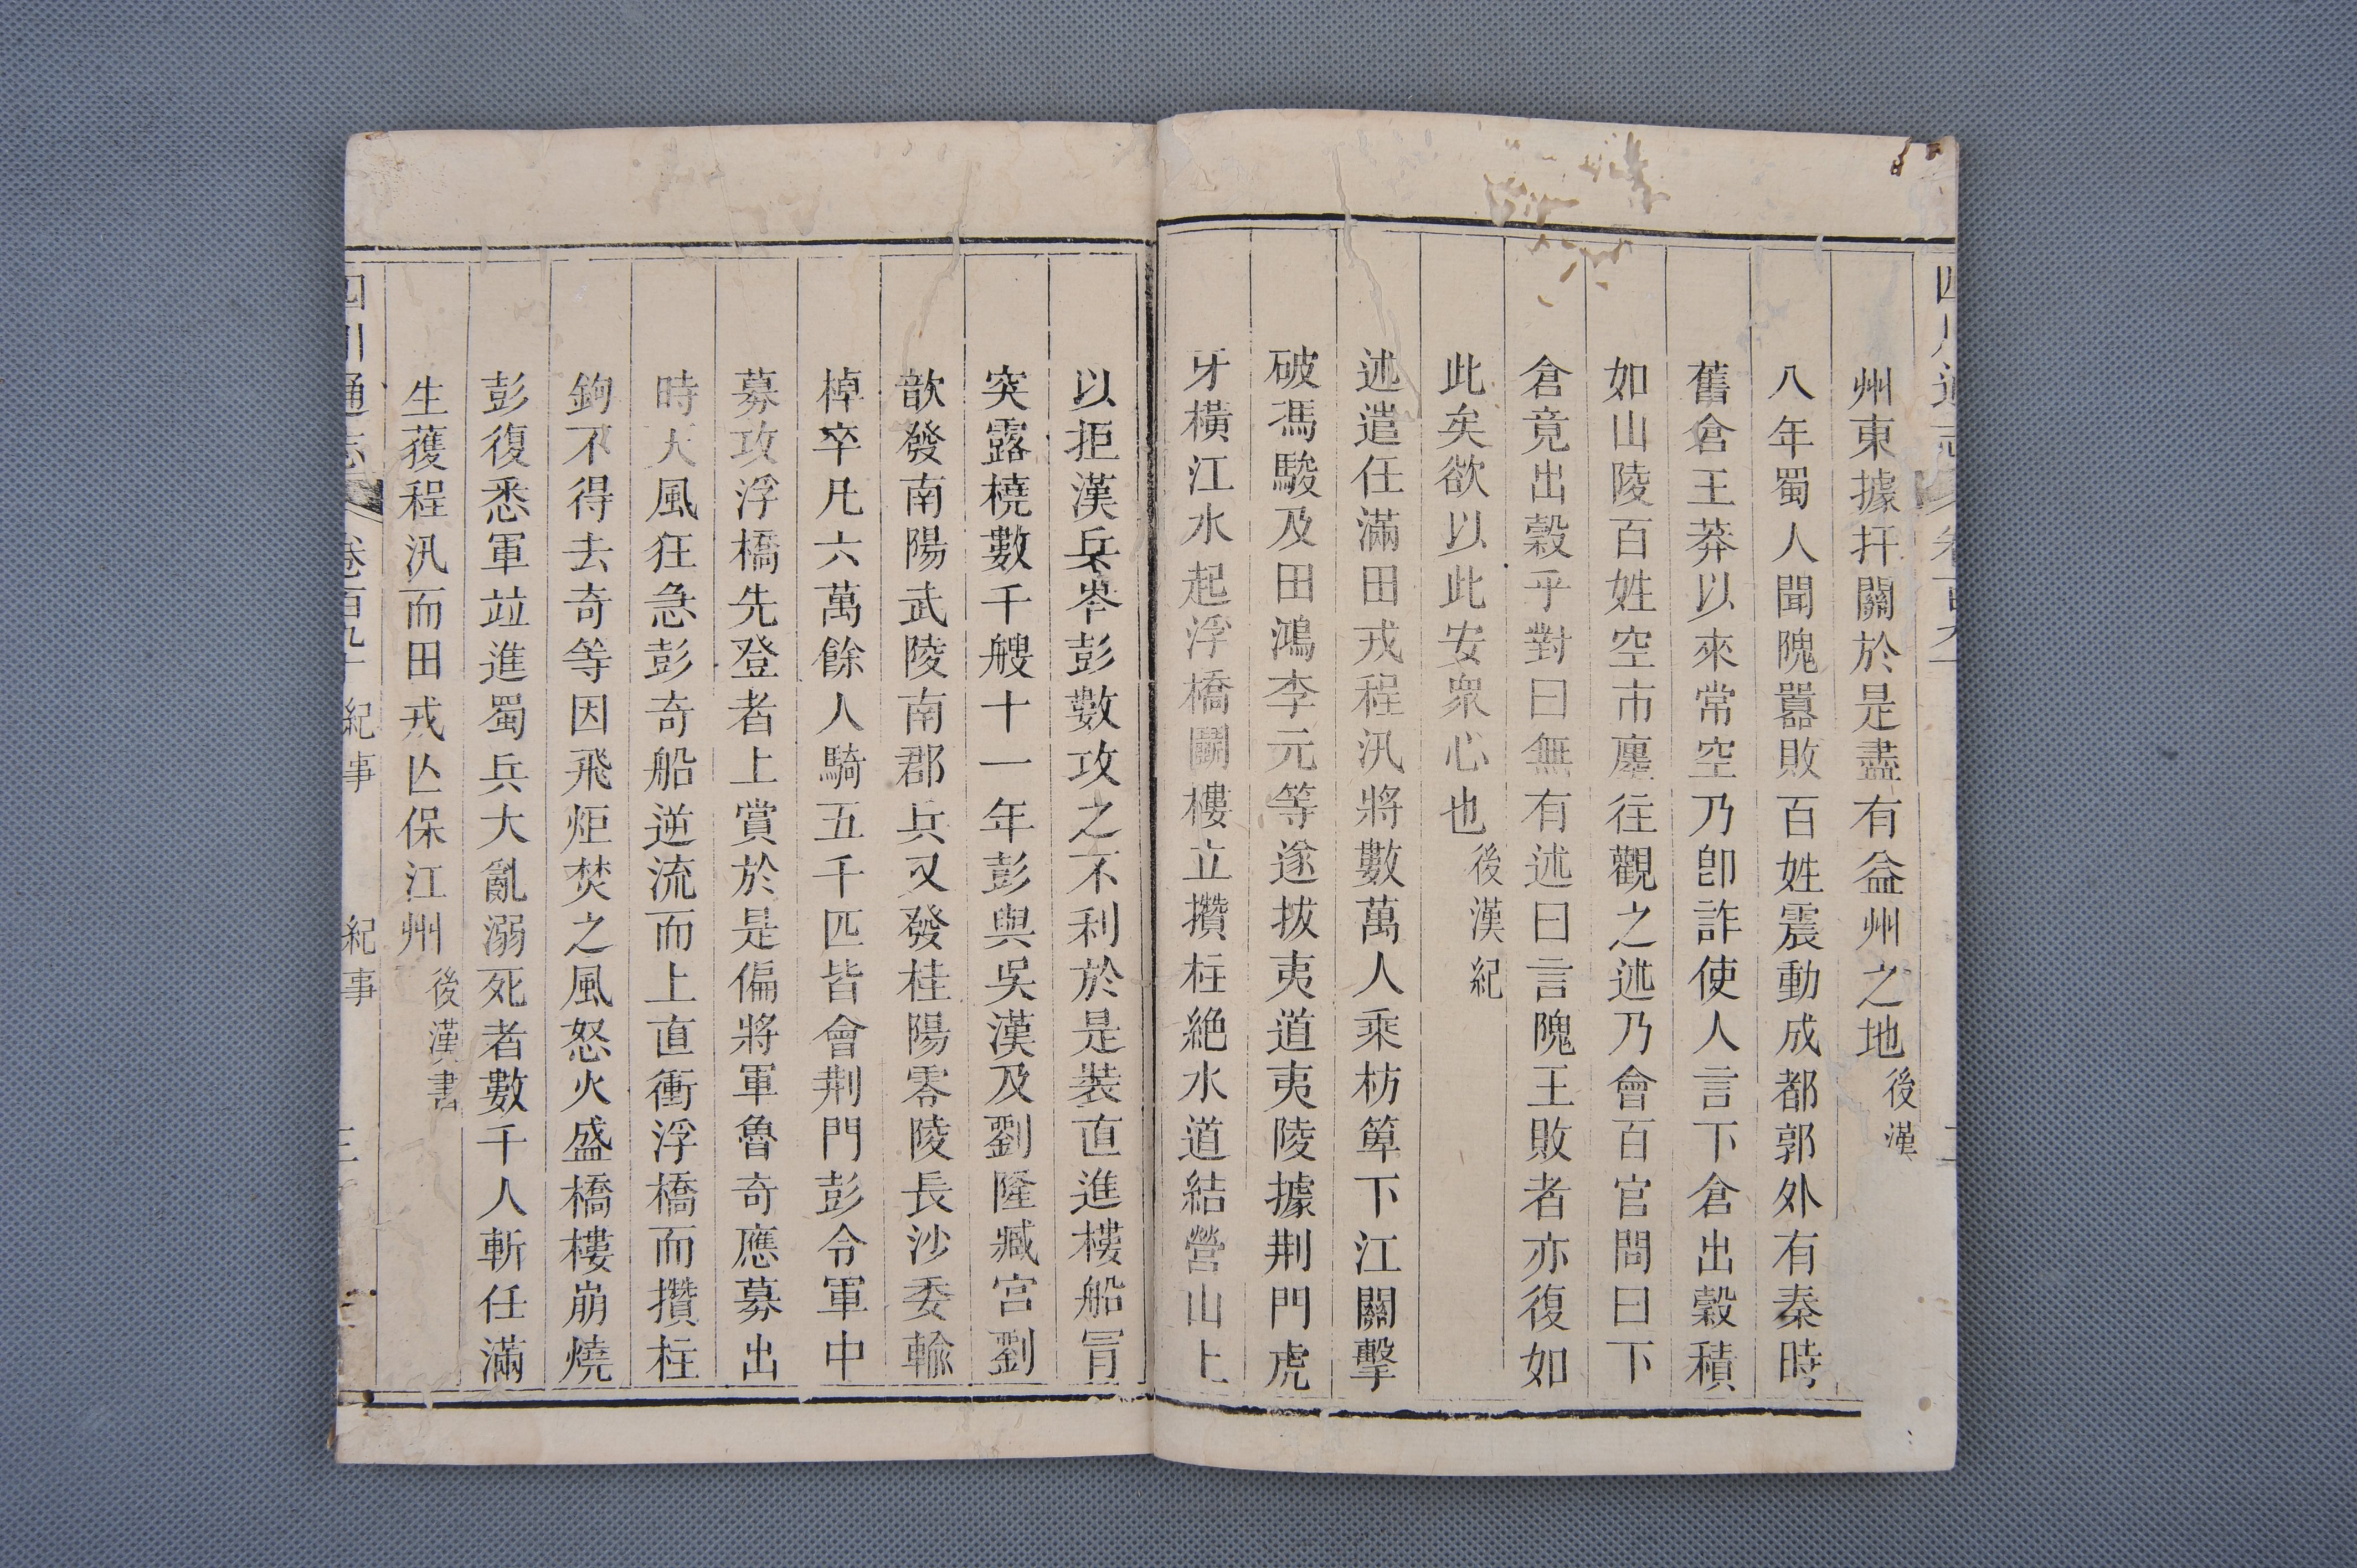 州東據扞關於是盡有益州之地後漢
八年蜀人聞隗囂敗百姓震動成都郭外有秦時
舊倉王莽以來常空乃卽詐使人言下倉出穀積
如山陵百姓空市廛往觀之述乃會百官問曰下
倉竟出穀乎對曰無有述曰言隗王敗者亦復如
此矣欲以此安衆心也後漢紀
述遣任滿田戎程汎將數萬人乘枋箄下江關擊
破馮駿及田鴻李元等遂拔夷道夷陵據荆門虎
牙橫江水起浮橋鬭樓立攢柱絶水道結營山上
以拒漢兵岑彭數攻之不利於是裝直進樓船冐
突露橈數千艘十一年彭與吳漢及劉隆臧宮劉
歆發南陽武陵南郡兵又發桂陽零陵長沙委輸
棹卒凡六萬餘人騎五千匹皆會荆門彭令軍中
募攻浮橋先登者上賞於是偏將軍魯奇應募出
時大風狂急彭奇船逆流而上直衝浮橋而攢柱
鉤不得去奇等因飛炬焚之風怒火盛橋樓崩燒
彭復悉軍竝進蜀兵大亂溺死者數千人斬任滿
生獲程汎而田戎亾保江州後漢書
四川通志 卷百九十 紀事 紀事 三